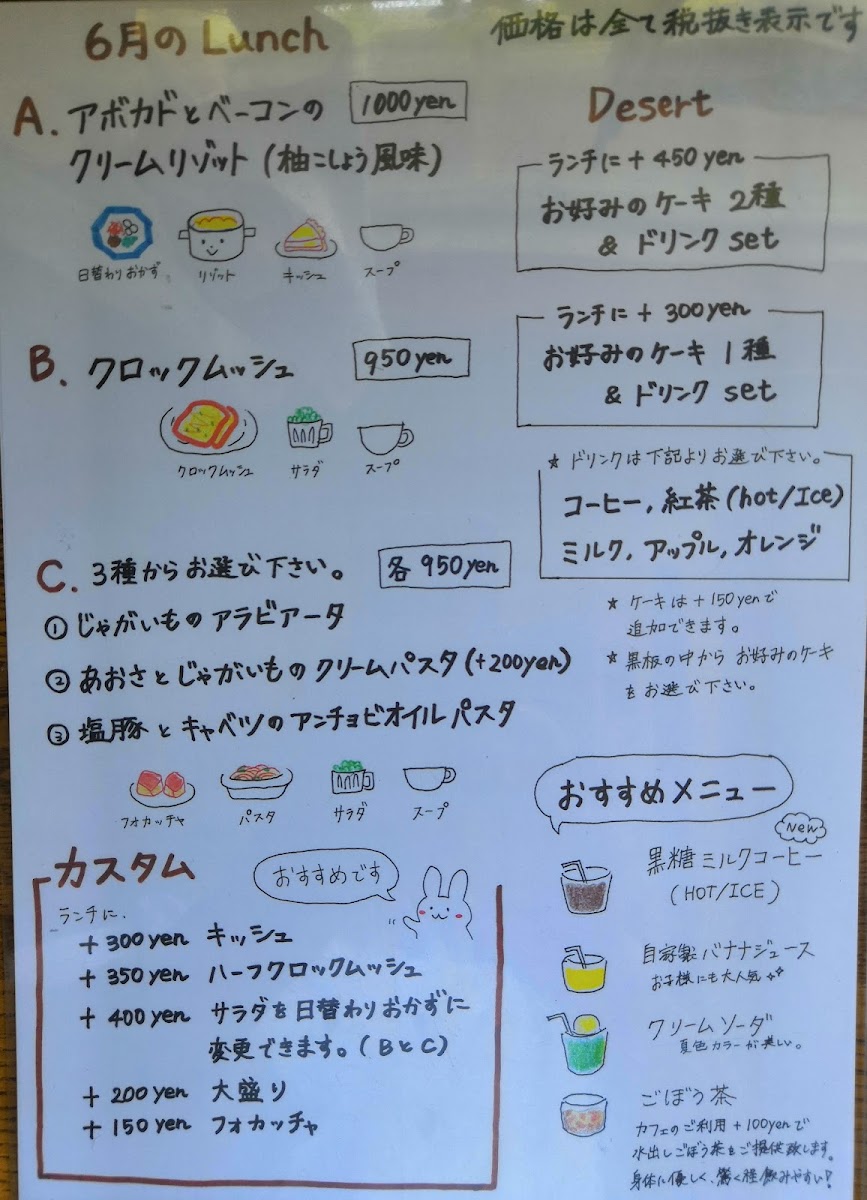 6月のLunch
価格は全て税抜き表示です
A. アボカドとベーコンの 1000yen
クリームリゾット(柚こしょう風味)
日替わりおかず リゾット キッシュ スープ
B. クロックムッシュ 950yen
クロックムッシュ サラダ スープ
C. 3種からお選び下さい。 各950yen
① じゃがいものアラビアータ
② あおさとじゃがいものクリームパスタ(+200yen)
③ 塩豚とキャベツのアンチョビオイルパスタ
フォカッチャ パスタ サラダ スープ
カスタム
おすすめです
ランチに、
+300yen キッシュ
+350yen ハーフクロックムッシュ
+400yen サラダを日替わりおかずに
変更できます。(BとC)
+200yen 大盛り
+150yen フォカッチャ
Desert
ランチに+450yen
お好みのケーキ2種
&ドリンクset
ランチに+300yen
お好みのケーキ1種
&ドリンクset
★ドリンクは下記よりお選び下さい。
コーヒー,紅茶(hot/Ice)
ミルク,アップル,オレンジ
★ケーキは+150yenで
追加できます。
★黒板の中からお好みのケーキ
をお選び下さい。
おすすめメニュー
New
黒糖ミルクコーヒー
(HOT/ICE)
自家製バナナジュース
お子様にも大人気
クリームソーダ
夏色カラーが美しい。
ごぼう茶
カフェのご利用+100yenで
水出しごぼう茶をご提供致します。
身体に優しく、驚く程飲みやすい!